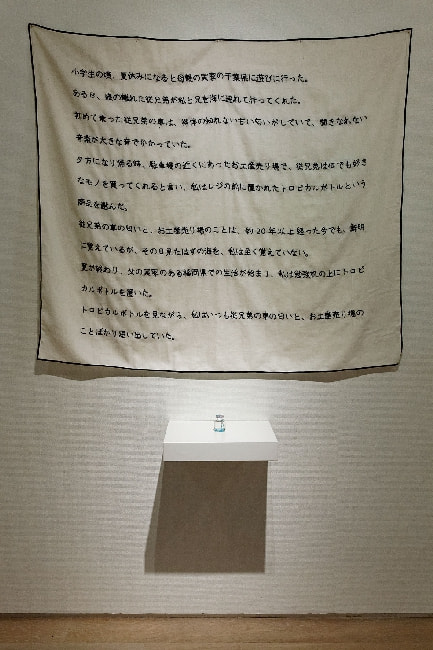 小学生の頃、夏休みになると母親の実家の千葉県に遊びに行った。
ある日、歳の離れた従兄弟が私と兄を海に連れて行ってくれた。
初めて乗った従兄弟の車は、得体の知れない甘い匂いがしていて、聞きなれない
音楽が大きな音でかかっていた。
夕方になり帰る時、駐車場の近くにあったお土産売り場で、従兄弟は何でも好き
なモノを買ってくれると言い、私はレジの前に置かれたトロピカルボトルという
商品を選んだ。
従兄弟の車の匂いと、お土産売り場のことは、約20年以上経った今でも、鮮明
に覚えているが、その日見たはずの海を、私は全く覚えていない。
夏が終わり、父の実家のある福岡県での生活が始まり、私は勉強机の上にトロピ
カルボトルを置いた。
トロピカルボトルを見ながら、私はいつも従兄弟の車の匂いと、お土産売り場の
ことばかり思い出していた。